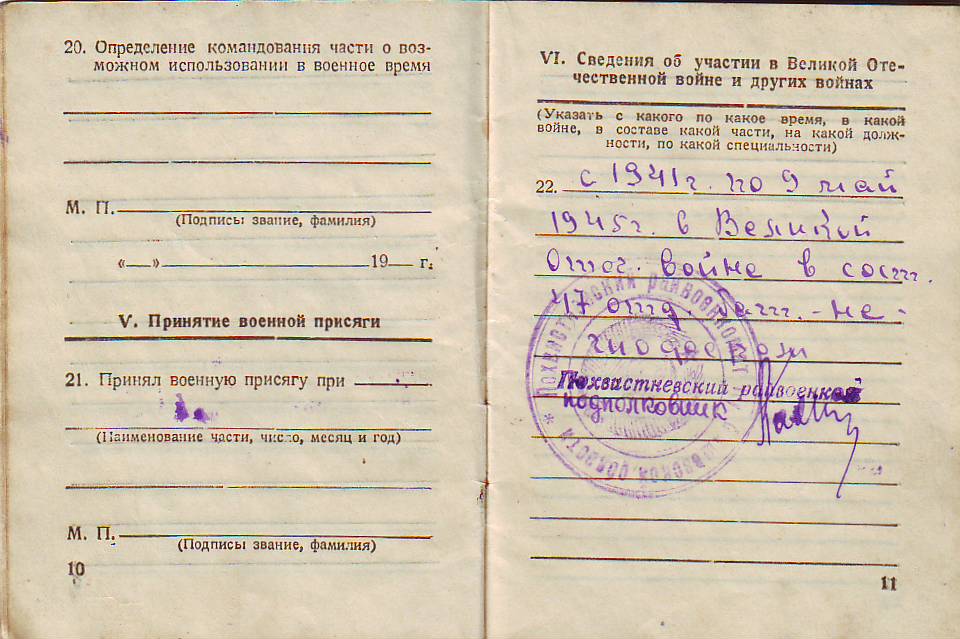 20. Определение командования части о воз-
можном использовании в военное время
М. П.
(Подписы звание, фамилия)
«__» 19__ г.
V. Принятие военной присяги
21. Принял военную присягу при
(Наименование части, число, месяц и год)
М. П.
(Подписы звание, фамилия)
10
VI. Сведения об участии в Великой Оте-
чественной войне и других войнах
(Указать с какого по какое время, в какой
войне, в составе какой части, на какой долж-
ности, по какой специальности)
22. с 1941г. по 9 май
1945г. в Великой
Отеч. войне в сост.
47 отд. бат. - не -
Похвистневский райвоенком
подполковник
Похвистневский райвоенкомат
области
11